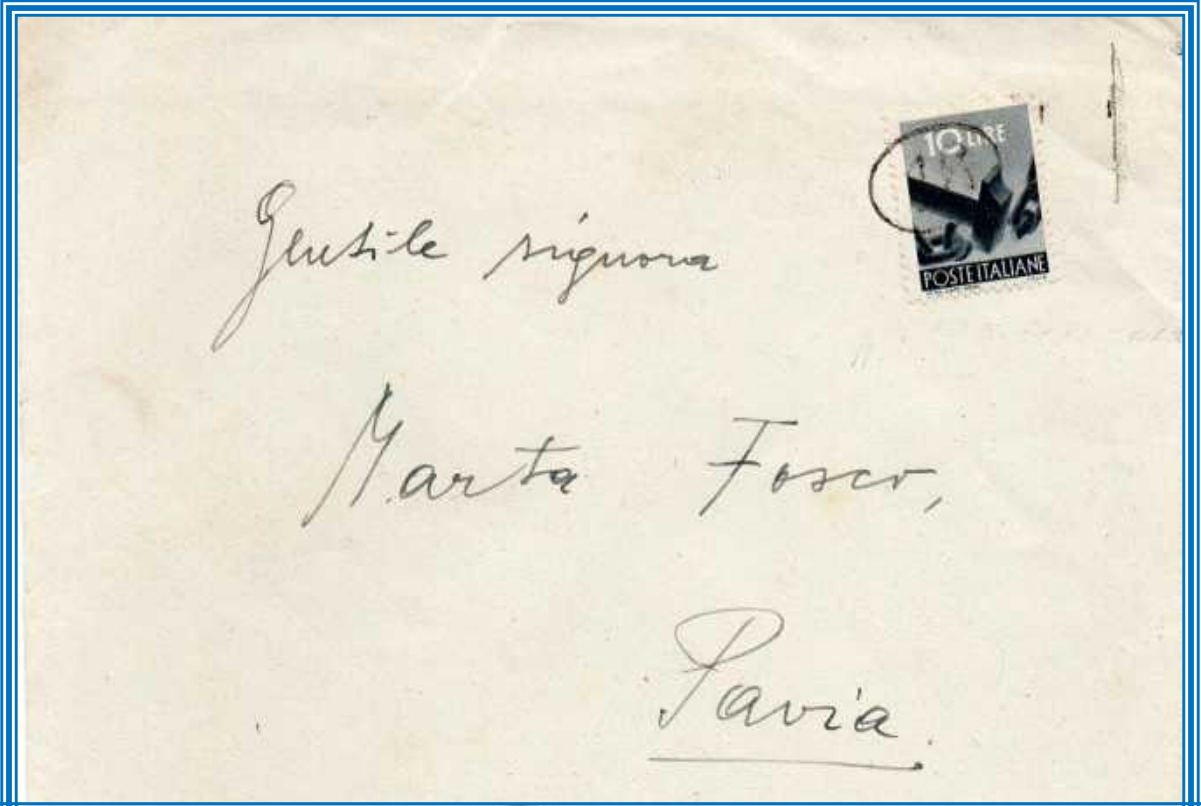 10 LIRE
POSTE ITALIANE
Gentile signora
Marta Fosco,
Pavia.